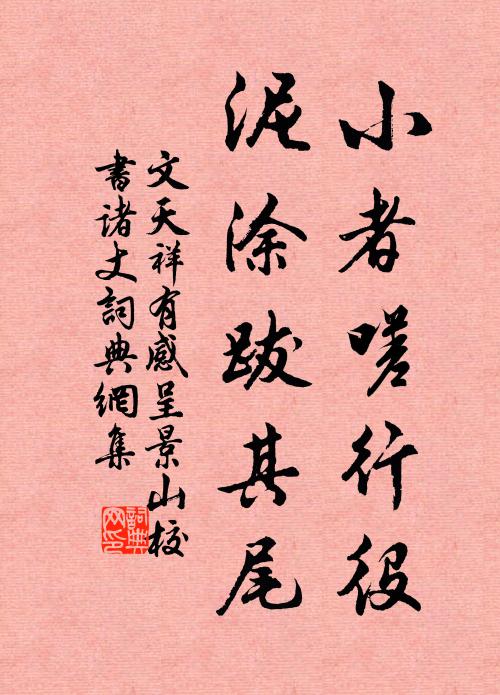 小者嗟行役
泥涂跋其尾
文天祥有感呈景山校
書诸丈詞典網集
詞典
网印